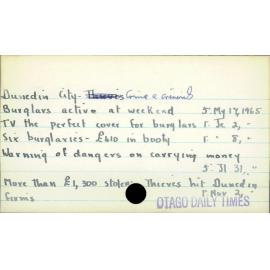 Dunedin City - Thieves Crime & criminals
Burglars active at weekend 5. My 17, 1965
TV the perfect cover for burglars 1. Je 2, "
Six burglaries - £410 in booty 1. " 8, "
Warning of dangers on carrying money
5. Jl 31, "
More than £1,300 stolen: Thieves hit Dunedin
firms 1. Nov 2, "
OTAGO DAILY TIMES